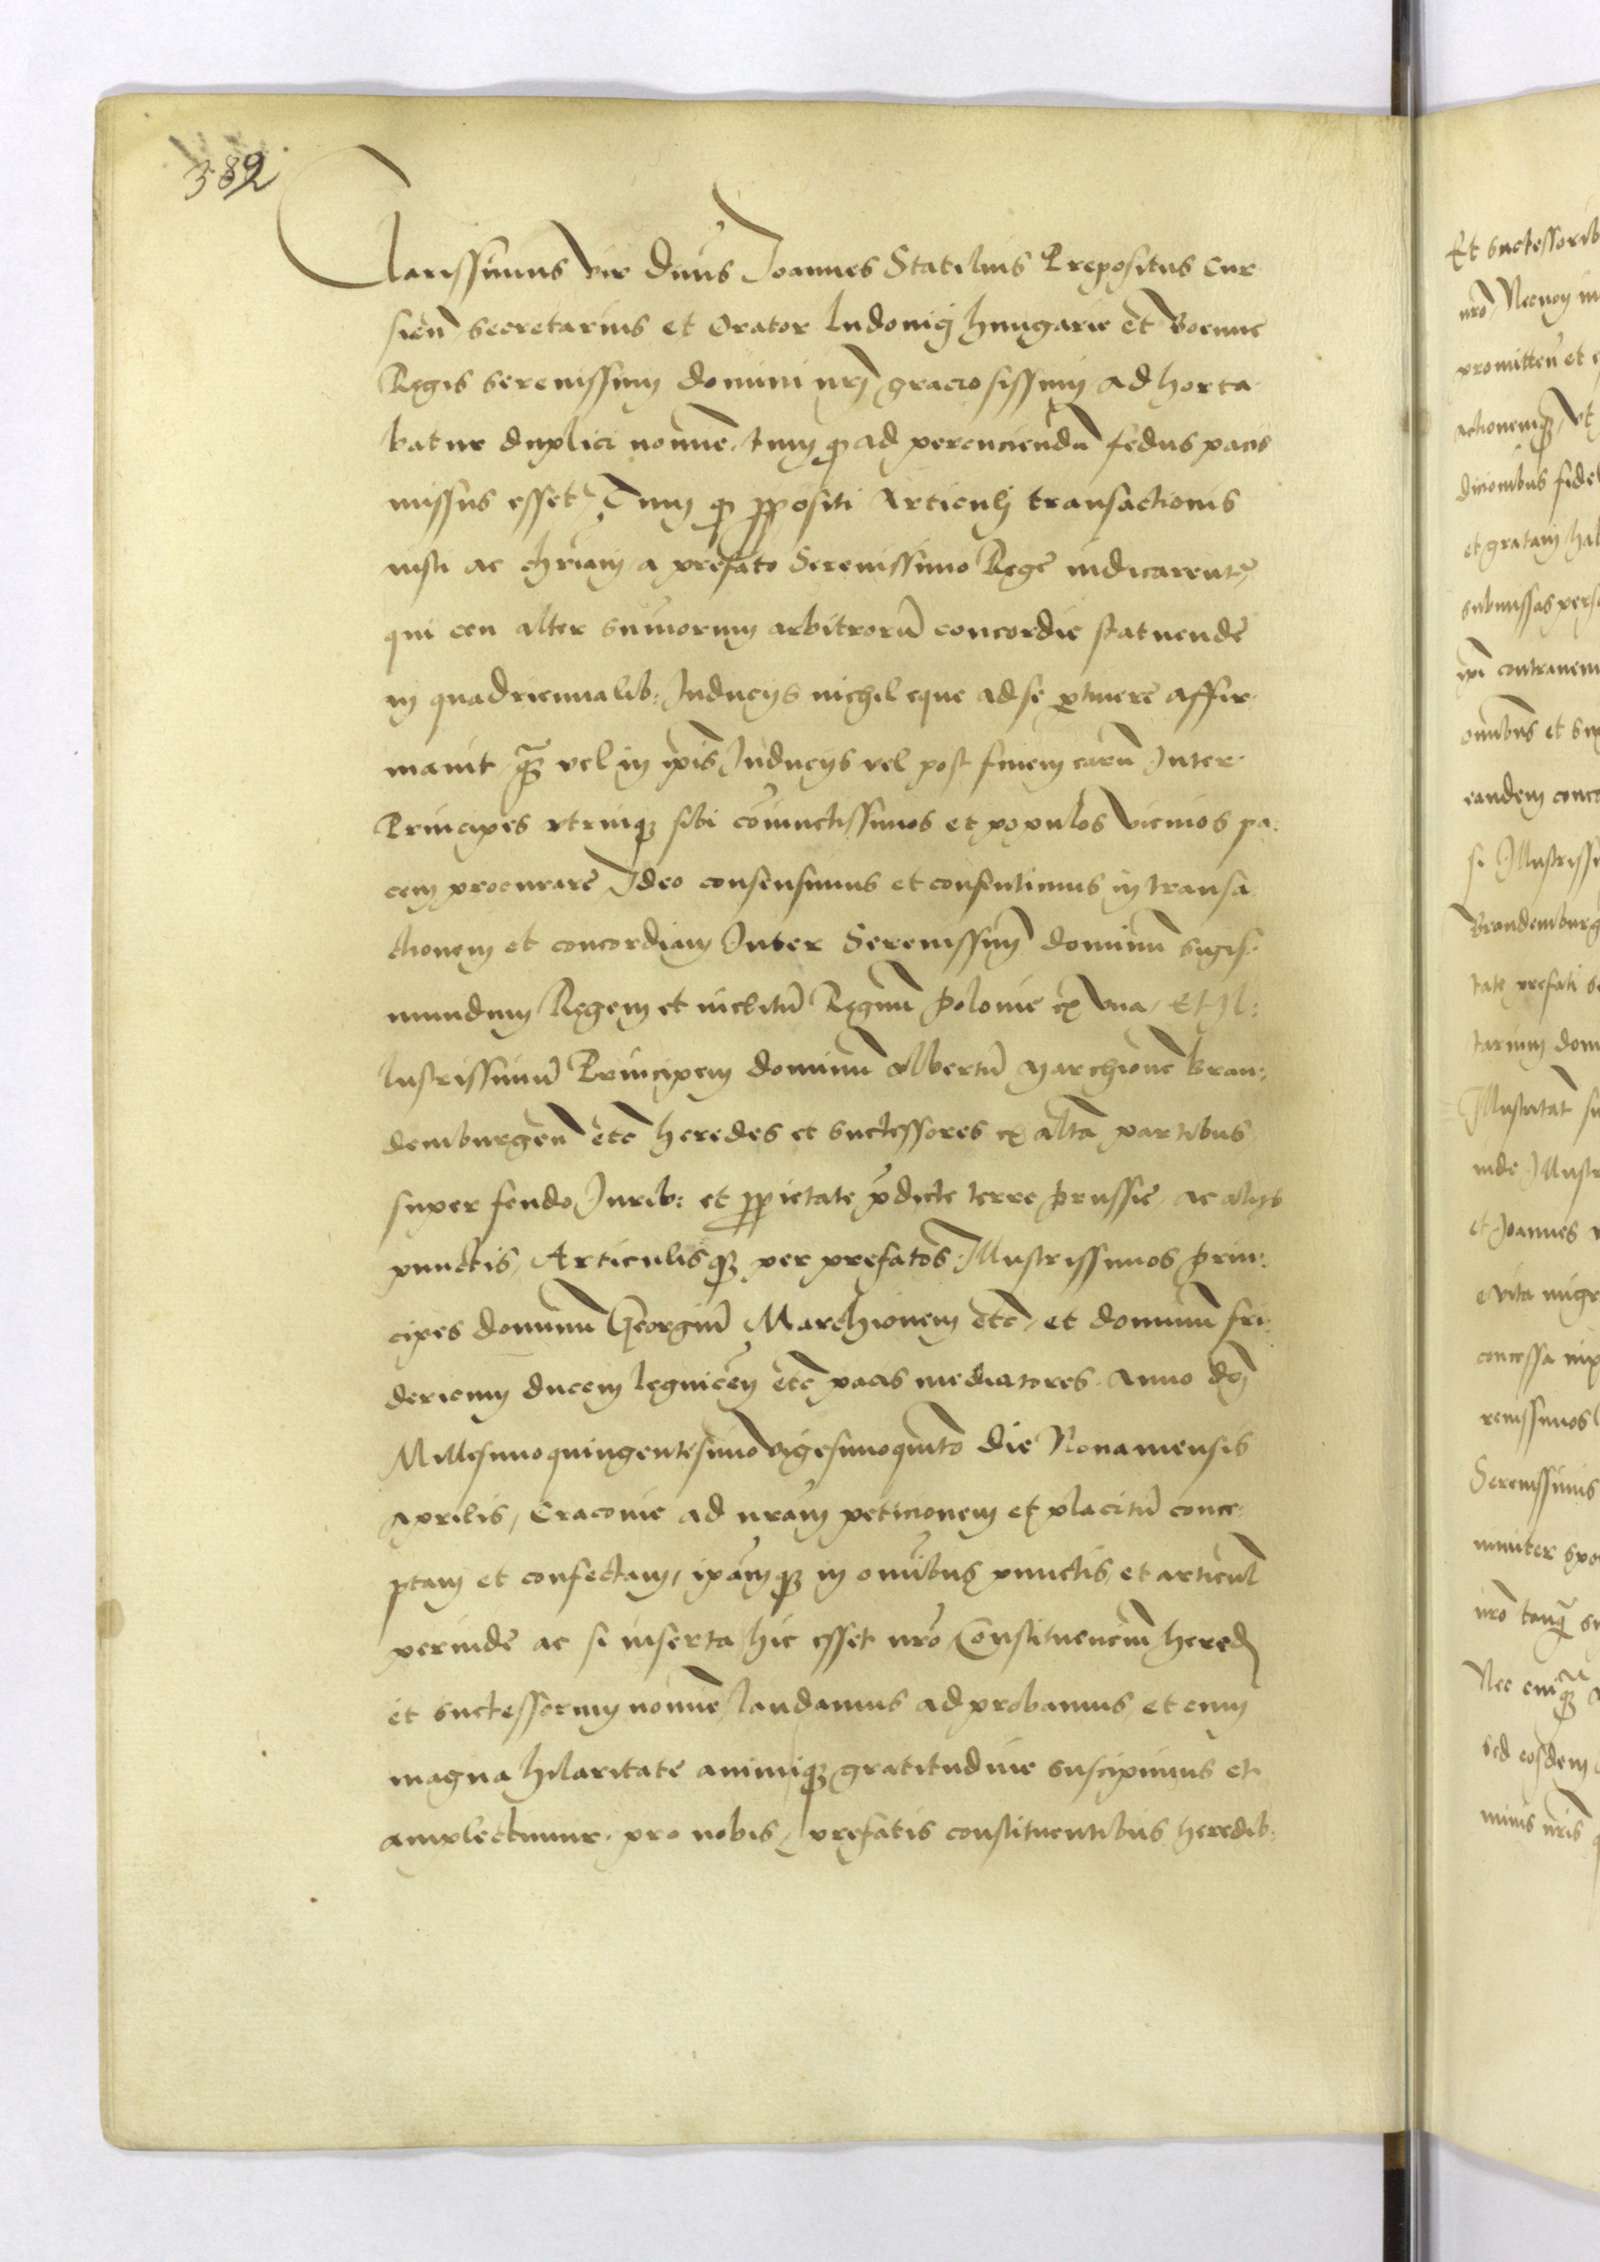 382
Clarissimus vir dnus Joannes Statilius Prepositus Cur
sien̄ secretarius et Orator ludouici hungarie et Boemie
Regis serenissimi domini nri graciosissimi adhorta
batur duplici nomine tum q ad percuciendū fedus pacis
missus esset Tum q ppositi Articuli transactionis
iusti ac chriani a prefato Serenissimo Rege iudicarentr
qui ceu alter sūmorum arbitrorū concordie statuende
in quadriennalib: Inducijs nichil eque ad se ptinere affir
mauit q̄ꝫ vel in ipis Inducijs vel post finem earū Inter
Principes vtrinqꝫ sibi coniunctissimos et populos vicinos pa
cem procurare Ideo consensimus et consentimus in transa
ctionem et concordiam Inter Serenissimū dominū sigis
mundum Regem et inclitū Regnū polonie ex vna / Et Il:
lustrissimū Principem dominū Albertū Marchionē bran:
demburgen̄ etc̄ heredes et successores ex altā partibus
super feudo Jurib: et ppietate p̄dicte terre prussie / ac alijs
punctis / Articulisqꝫ per prefatos Illustrissimos prin:
cipes dominū Georgiū Marchionem etc̄ / et dominū fri
dericum ducem legnicēn etc̄ pacis mediatores Anno dni
Millesimoquingentesimo vigesimoquinto die Nona mensis
Aprilis / Cracouie ad nram peticionem et placitū conce
ptam et confectam / ipamqꝫ in omibus punctis et articul
perinde ac si inserta hic esset nro Constituenciū hered
et successorum nomine / laudamus adprobamus et cum
magna hilaritate animiqꝫ gratitudine suscipimus et
amplectimur pro nobis / prefatis constituentibus heredib:
Et successorib
nro Necnon in
promitten̄ et
actionemqꝫ vt
dicionibus fidel
et gratam hab
submissas pers
contrauen
omibus et
eandem conco
si Illustrissi
Brandemburg
tate prefati se
tarium dom
Illustritat su
inde Illustr
et Joannes
e vita migr
concessa
renissimos
Serenissimis
miniter spo
nro tanq̄
Nec
sed eosdem
nris